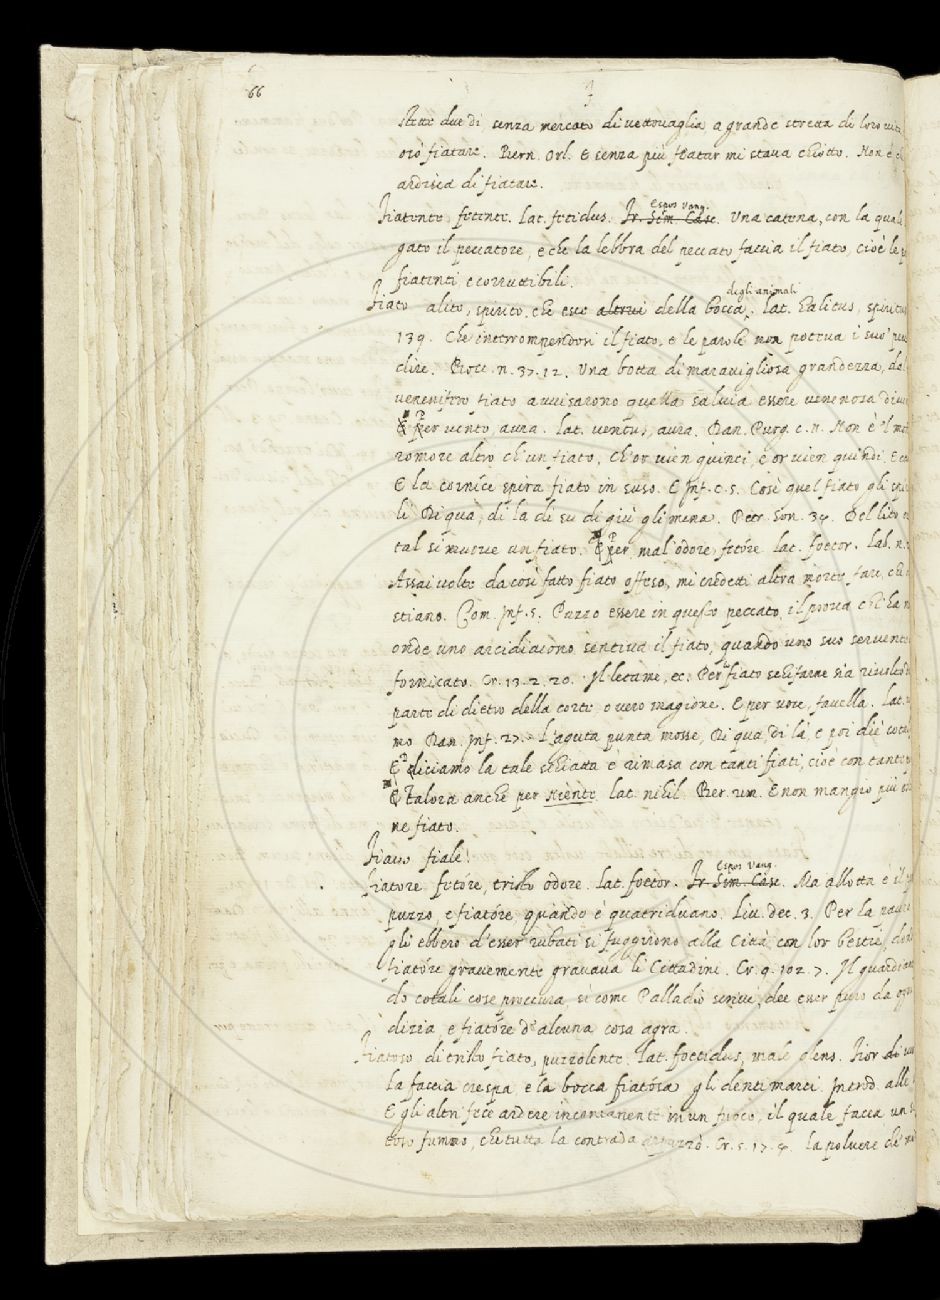 66
F
stette due dì senza mercato di vettovaglia a grande stretta di loro vita
oso fiatare. Bern. Orl. E senza più fiatar mi stava chiotto. Non è ch
ardisca di fiatare.
Fiatente fetente. Lat. fetidus. Fr. Sim. Casc. Espos Vang. Una catena, con la quale
gato il peccatore, e che la lebbra del peccato faccia il fiato, cioè le p
fiatenti e corruttibili.
Fiato alito, spirito, che esce altrui della bocca degli animali. Lat. halitus, spiritus
139. Che inetrrompendosi il fiato, e le parole non poteva i suo' pen
dire. Bocc. n. 37. 12. Una botta di maravigliosa grandezza, dal
venenifero fiato avvisarono quella salvia essere venenosa dive
E per vento, aura. Lat. ventus, aura. Dan. Purg. c. 11. Non è il mo
romore altro ch' un fiato, Ch'or vien quinci, e or vien quindi. E ca
E la cornice spira fiato in suso. E Inf. c. 5. Così quel fiato gli spi
li Di quà, di là di su di giù gli mena. Petr. Son. 34. Del lito
tal si muove un fiato. E per mal' odore, fetóre Lat. foetor. Lab. n.
Assai volte da così fatto fiato offeso, mi credetti altra morte fare, che
stiano. Com. Inf. 5. Puzzo essere in questo peccato, il prova ch' ha
onde uno arcidiacono sentiva il fiato, quando uno suo servente
fornicato. Cr. 13. 2. 20. Il letame, ec. Per fiato schifarne sia rivolto
parte di dietro della corte o vero magione. E per voce, favella. Lat.
mo Dan. Inf. 27. L'aguta punta mosse, Di qua, di là, e poi diè cotal
E diciamo la tale schiatta è rimasa con tanti fiati, cioè con tante p
E talora anche per niente Lat. nihil. Ber. rim. E non mangio più
ne fiato.
Fiavo fiale.
Fiatore fetóre, tristo odore. Lat. foetor. Fr. Sim. Casc. Espos Vang. Ma allotta è il
puzzo, e fiatóre quando è quatriduano. Liv. dec. 3. Per la paura
gli ebbero d'esser rubati si fuggirono alla Città con lor bestie,
fiatóre gravemente gravava li Cittadini. Cr. 9. 102. 7. Il guardiano
do cotali cose proccura, sì come Palladio scrive, dee esser puro da
dizia, e fiatóre d'alcuna cosa agra.
Fiatoso di tristo fiato, puzzolente. Lat. foetidus, male olens. Fior di
la faccia crespa, e la bocca fiatósa gli denti marci. Introd. alle
E gli altri fece ardere incontanente in un fuoco, il quale facea un
toso fummo, che tutta la contrada appuzzò. Cr. 5. 17. 4. La polvere che